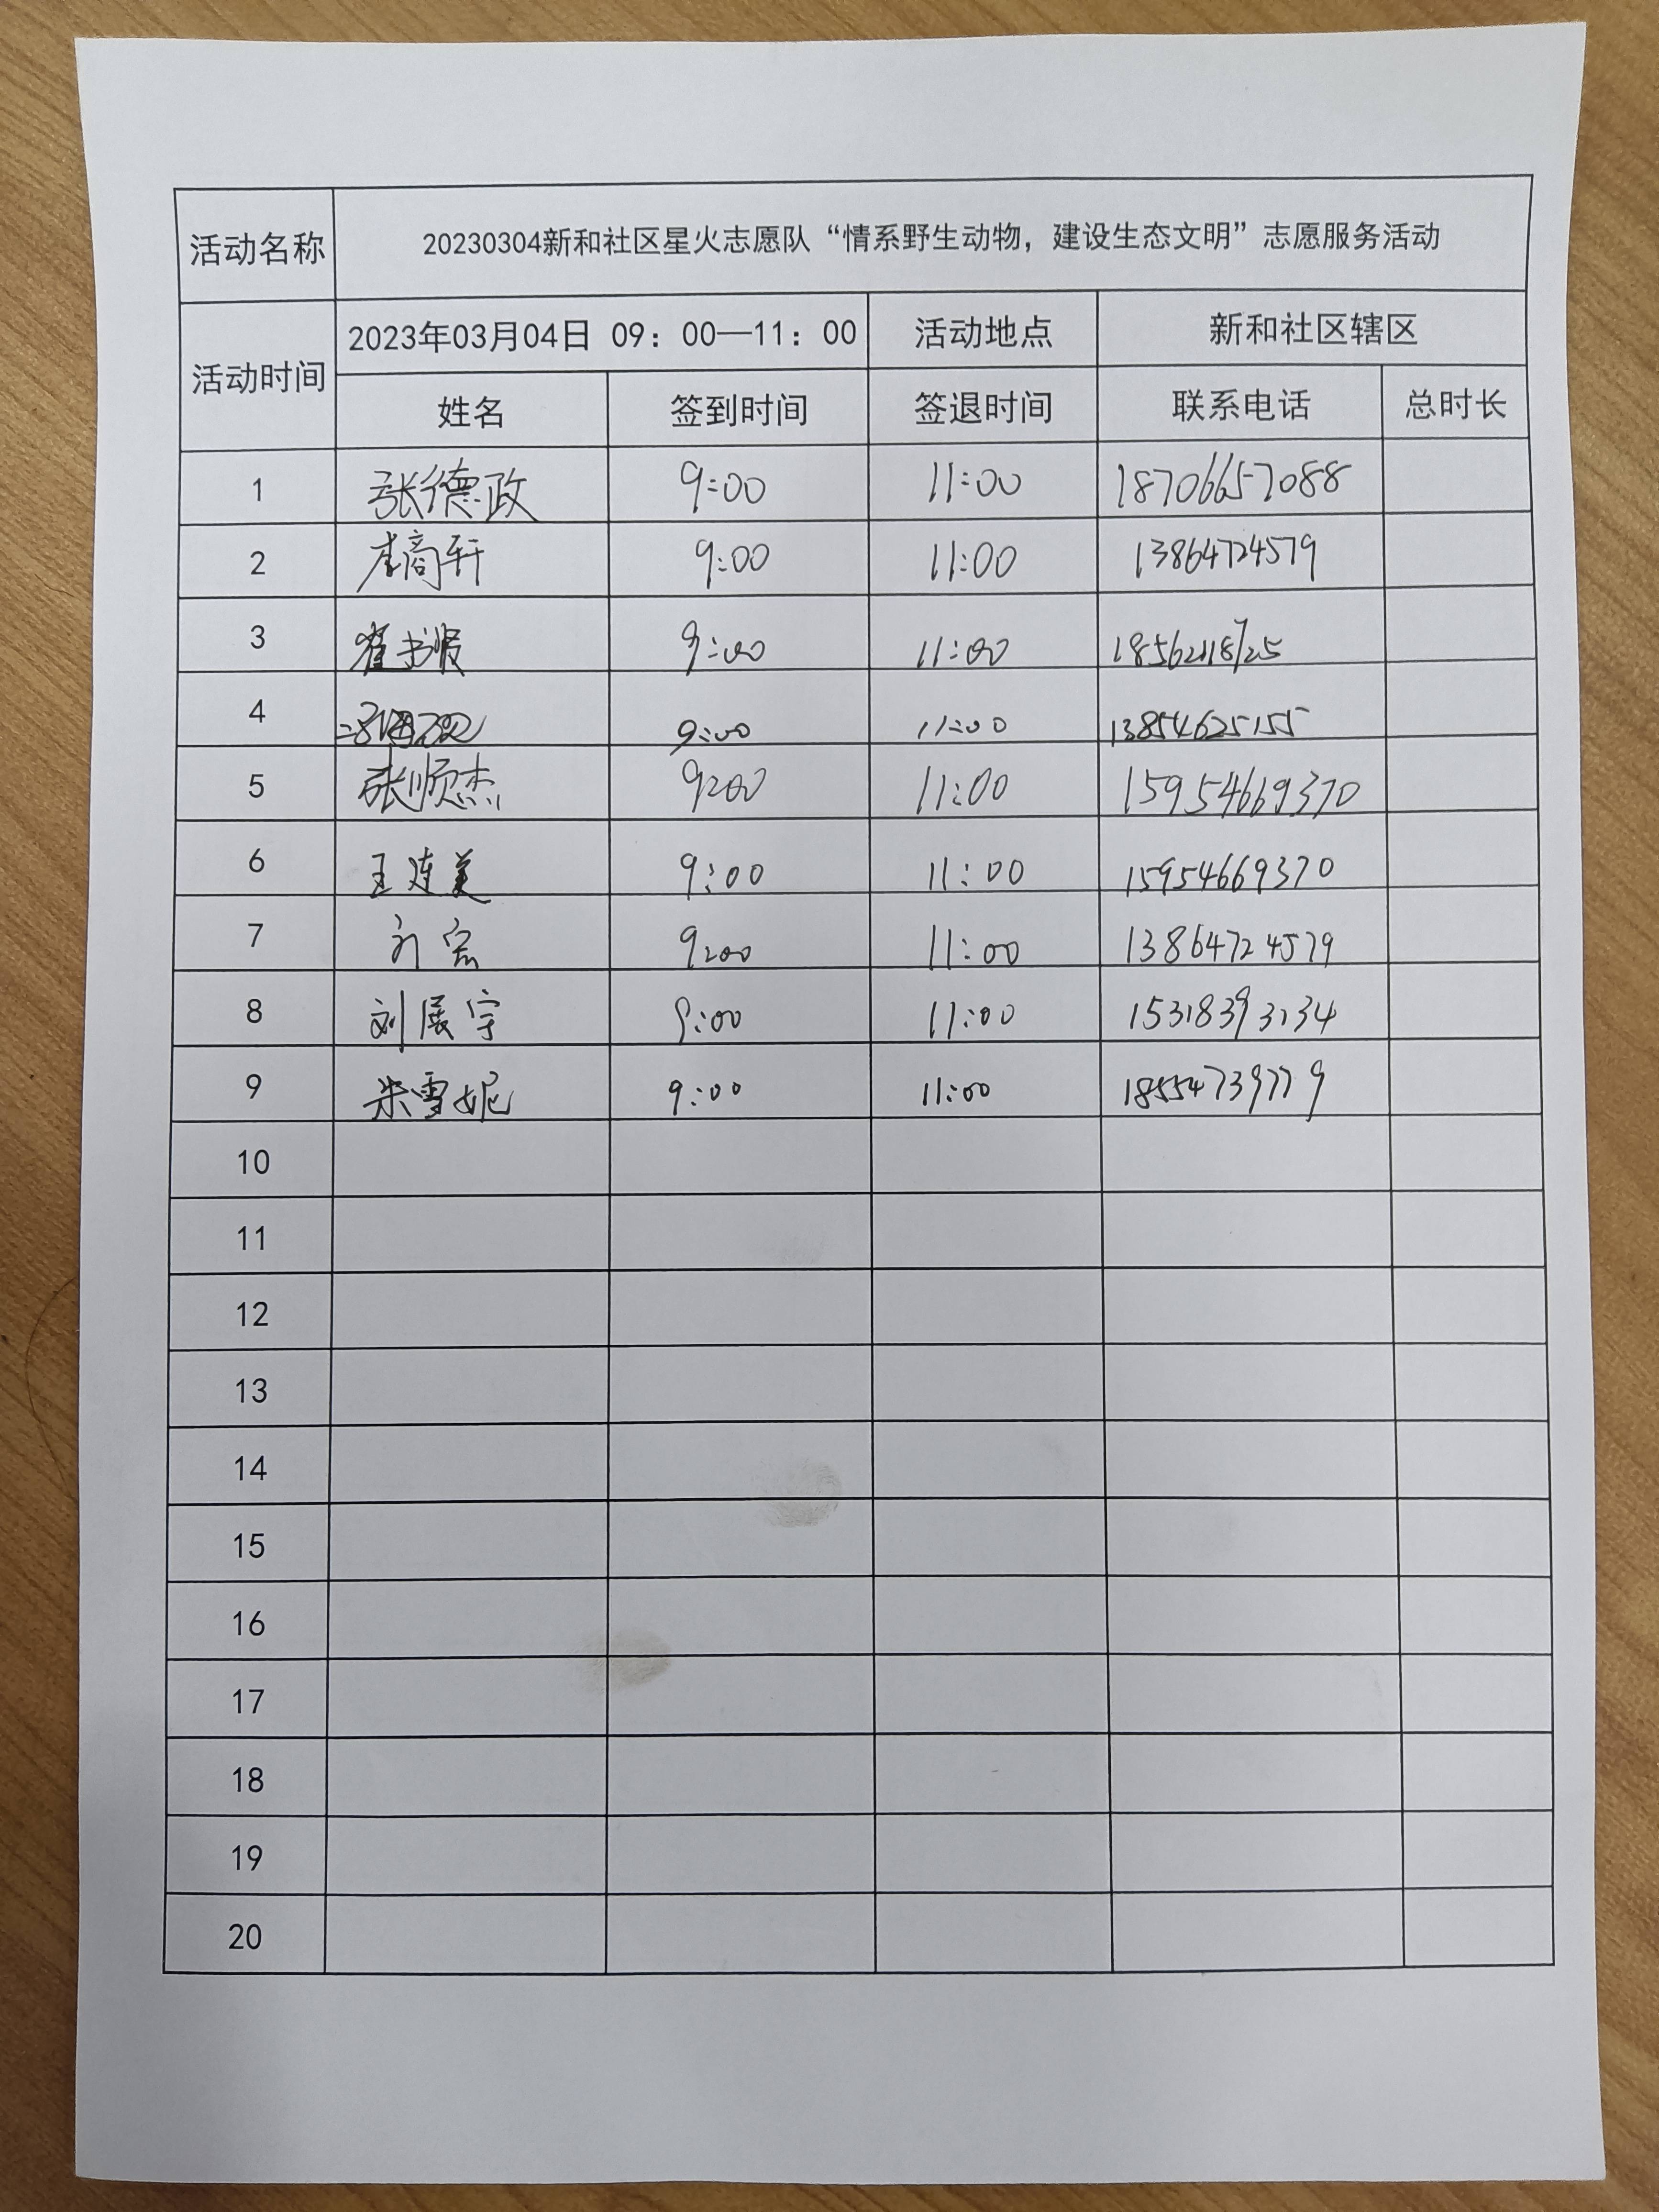 活动名称 20230304新和社区星火志愿队“情系野生动物，建设生态文明”志愿服务活动
活动时间 2023年03月04日 09：00—11：00 活动地点 新和社区辖区
姓名 签到时间 签退时间 联系电话 总时长
1 张德政 9:00 11:00 18706657088
2 李商轩 9:00 11:00 13864724579
3 崔书贤 9:00 11:00
4 9:00 11:00 13854625155
5 张顺杰 9:00 11:00 15954669370
6 王连美 9:00 11:00 15954669370
7 9:00 11:00 13864724579
8 刘展宇 9:00 11:00 15318393134
9 朱雪妮 9:00 11:00 18554739779
10
11
12
13
14
15
16
17
18
19
20